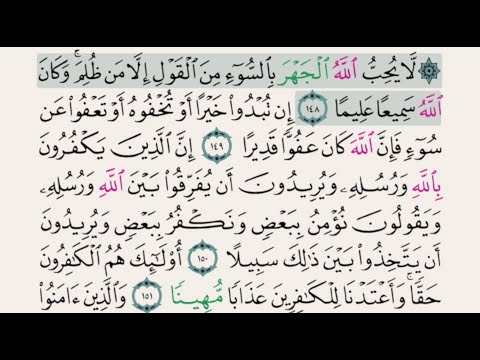 ۞ لَّا يُحِبُّ ٱللَّهُ ٱلْجَهْرَ بِٱلسُّوٓءِ مِنَ ٱلْقَوْلِ إِلَّا مَن ظُلِمَ ۚ وَكَانَ
ٱللَّهُ سَمِيعًا عَلِيمًا ١٤٨ إِن تُبْدُوا۟ خَيْرًا أَوْ تُخْفُوهُ أَوْ تَعْفُوا۟ عَن
سُوٓءٍ فَإِنَّ ٱللَّهَ كَانَ عَفُوًّا قَدِيرًا ١٤٩ إِنَّ ٱلَّذِينَ يَكْفُرُونَ
بِٱللَّهِ وَرُسُلِهِۦ وَيُرِيدُونَ أَن يُفَرِّقُوا۟ بَيْنَ ٱللَّهِ وَرُسُلِهِۦ
وَيَقُولُونَ نُؤْمِنُ بِبَعْضٍ وَنَكْفُرُ بِبَعْضٍ وَيُرِيدُونَ
أَن يَتَّخِذُوا۟ بَيْنَ ذَٰلِكَ سَبِيلًا ١٥٠ أُو۟لَـٰٓئِكَ هُمُ ٱلْكَـٰفِرُونَ
حَقًّا ۚ وَأَعْتَدْنَا لِلْكَـٰفِرِينَ عَذَابًا مُّهِينًا ١٥١ وَٱلَّذِينَ ءَامَنُوا۟